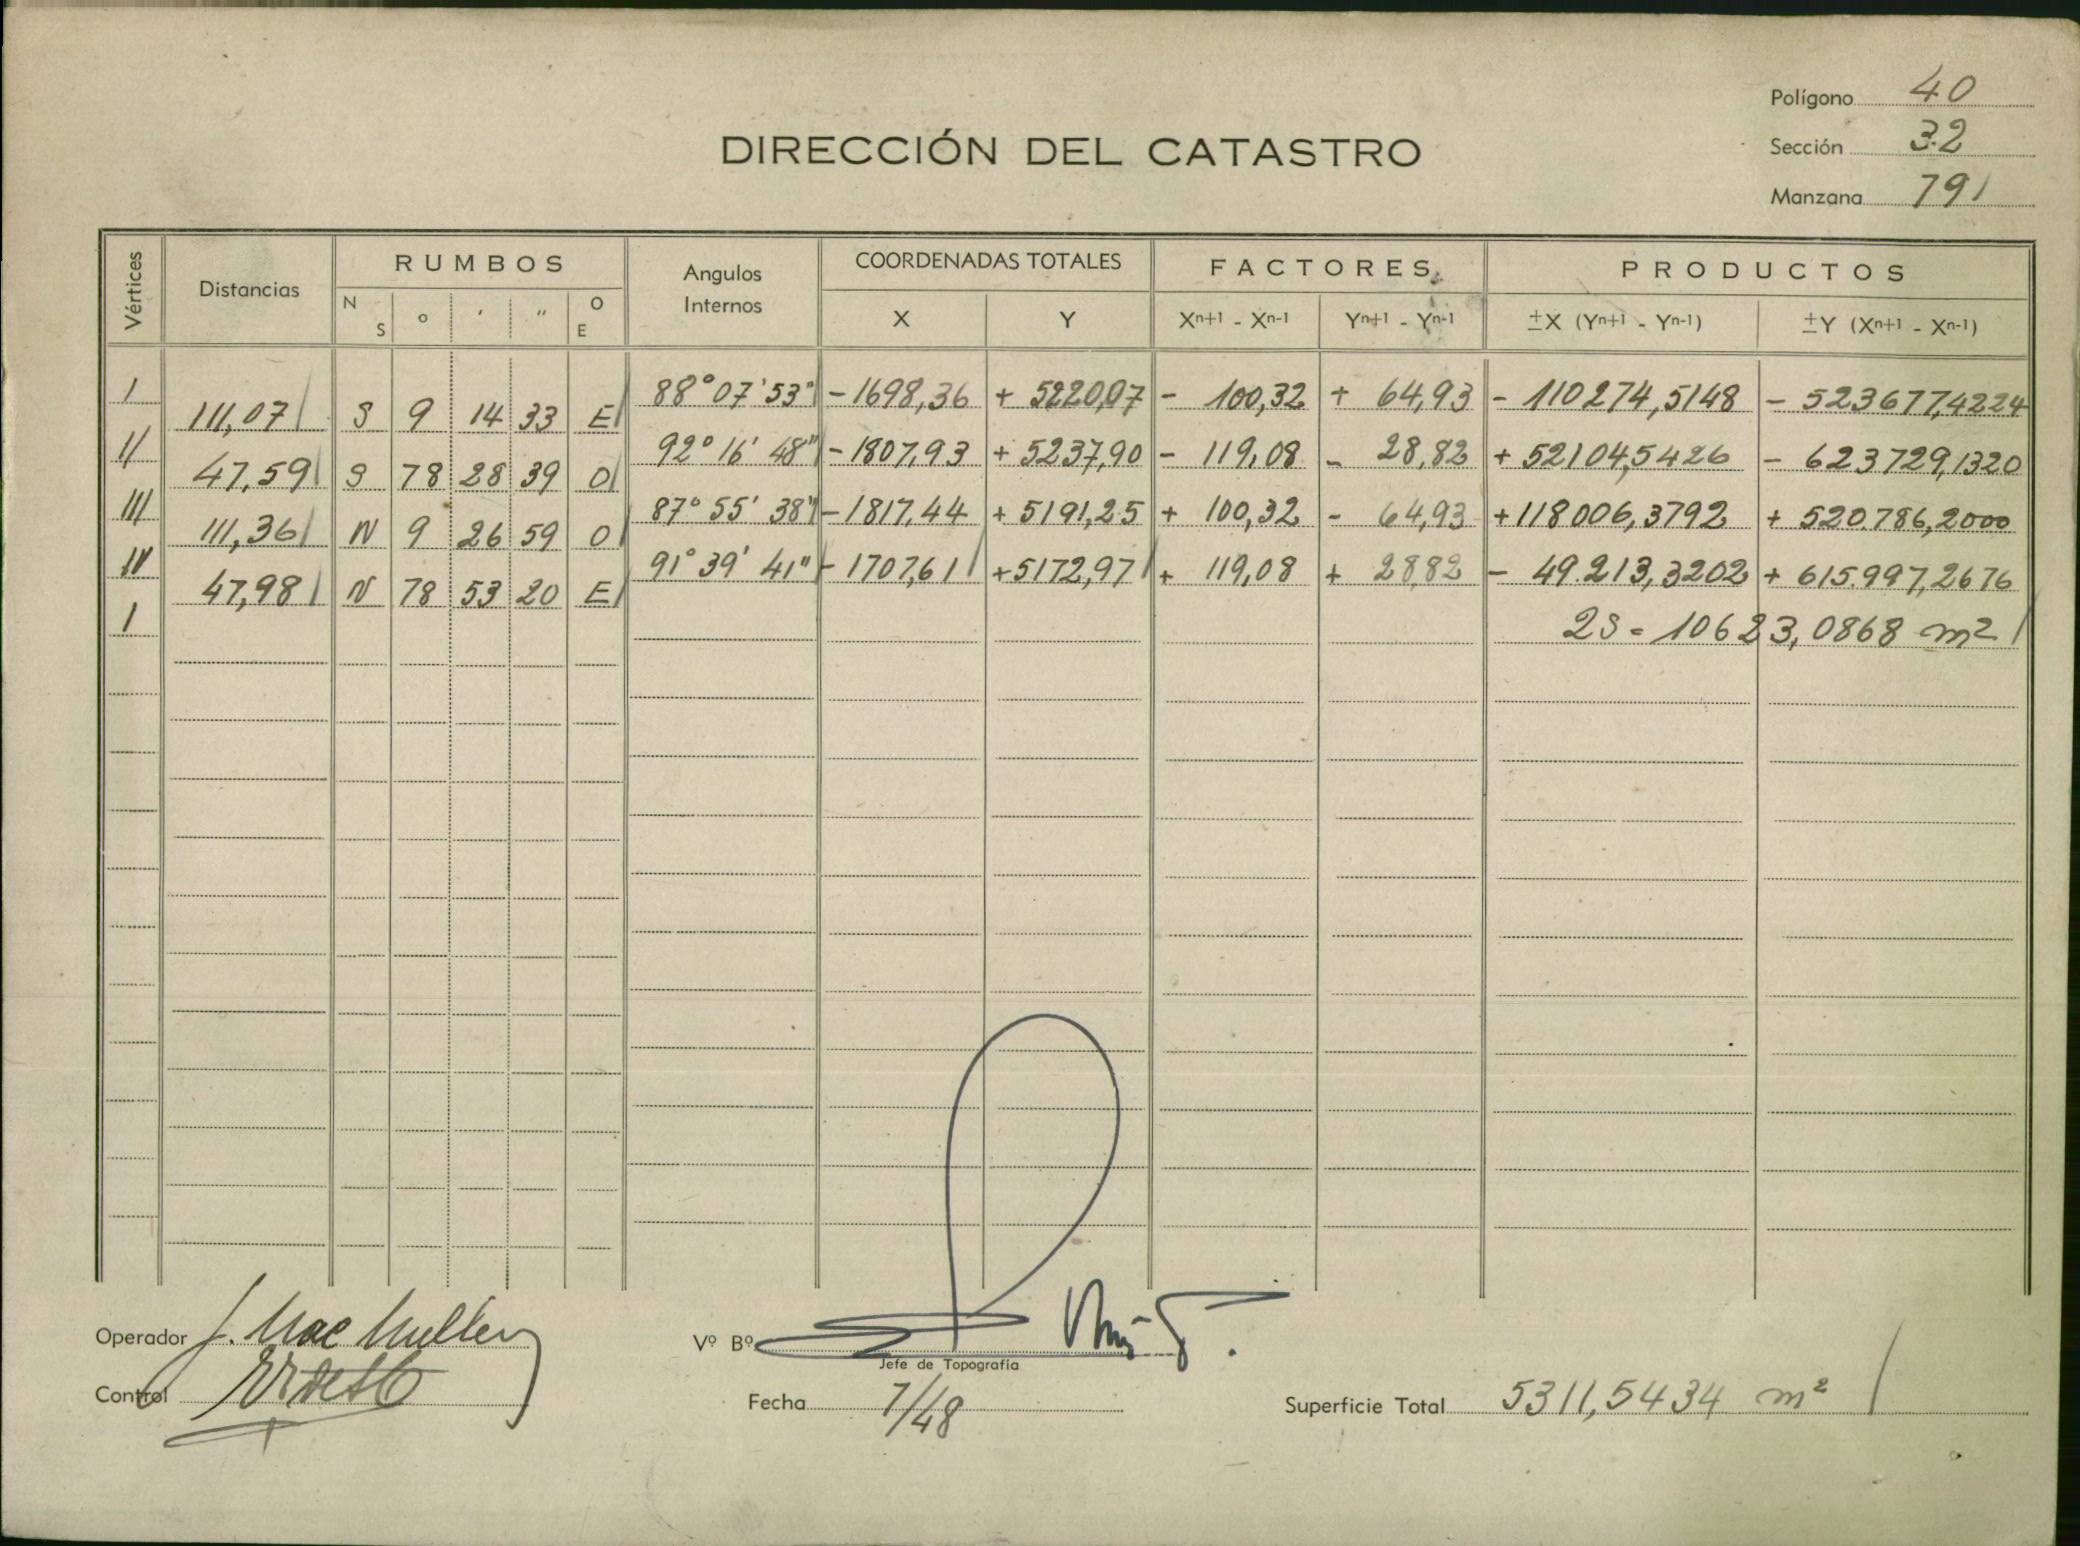 Polígono 40
DIRECCIÓN DEL CATASTRO
Sección 32
Manzana 791
Vértices Distancias RUMBOS Angulos Internos COORDENADAS TOTALES FACTORES PRODUCTOS
N S ° ' " O E X Y Xn+1 - Xn-1 Yn+1 - Yn-1 ±X (Yn+1 - Yn-1) ±Y (Xn+1 - Xn-1)
I 88° 07' 53" - 1698,36 + 5220,07 - 100,32 + 64,93 - 110274,5148 - 523677,4224
111,07 S 9 14 33 E
II 92° 16' 48" - 1807,93 + 5237,90 - 119,08 - 28,82 + 52104,5426 - 623729,1320
47,59 S 78 28 39 O
III 87° 55' 38" - 1817,44 + 5191,25 + 100,32 - 64,93 + 118006,3792 + 520.786,2000
111,36 N 9 26 59 O
IV 91° 39' 41" - 1707,61 + 5172,97 + 119,08 + 28,82 - 49.213,3202 + 615.997,2676
47,98 N 78 53 20 E
I 2S = 10623,0868 m²
Operador J. Mac Mullen
Vº Bº
Jefe de Topografía
Control
Fecha 7/48
Superficie Total 5311,5434 m²